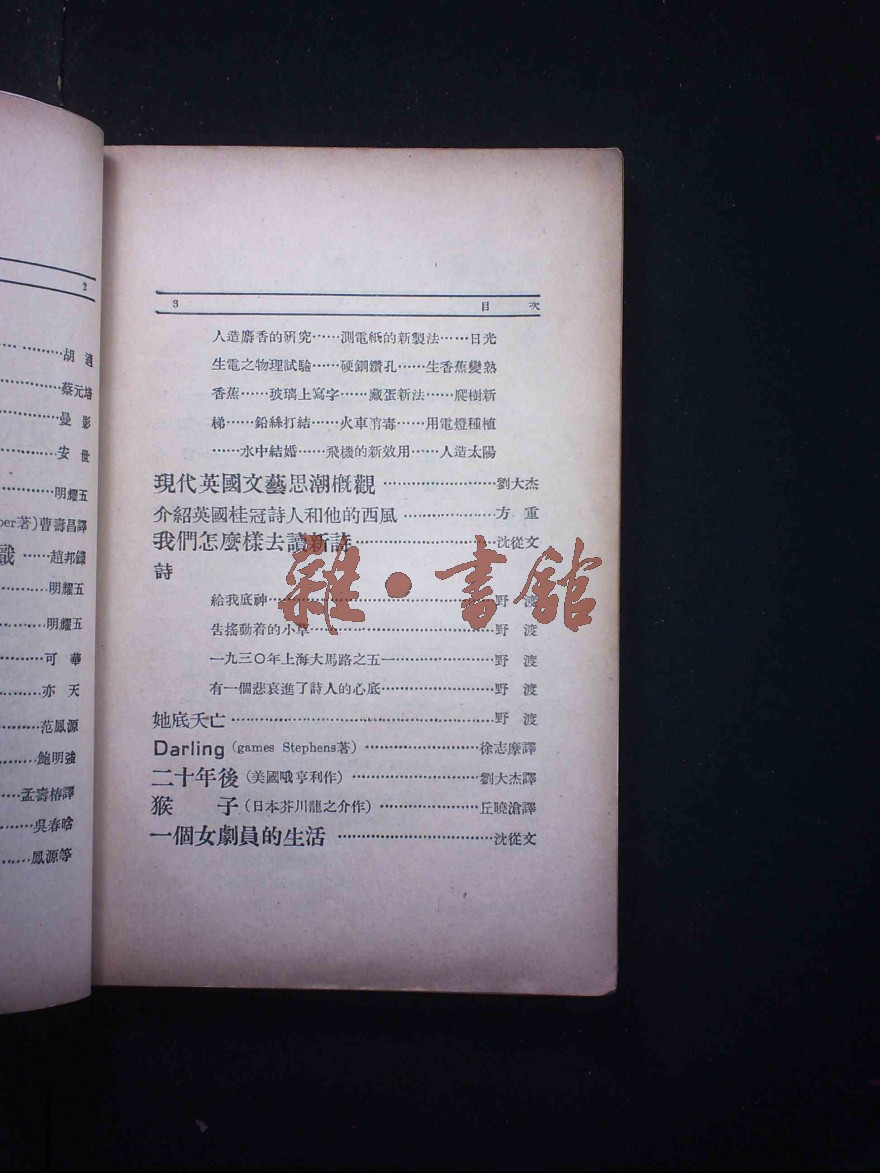 2
胡適
蔡元培
曼影
安世
明耀五
per著)曹壽昌譯
識……趙邦鑅
明耀五
明耀五
可華
亦天
范鳳源
鮑明強
孟壽椿譯
吳春晗
鳳源等
3 目次
人造麝香的研究……測電紙的新製法……日光
生電之物理試驗……硬鋼鑽孔……生香蕉變熟
香蕉……玻璃上寫字……藏蛋新法……爬樹新
梯……鉛絲打結……火車消毒……用電燈種植
……水中結婚……飛機的新效用……人造太陽
現代英國文藝思潮概觀……劉大杰
介紹英國桂冠詩人和他的西風……方重
我們怎麼樣去讀新詩……沈從文
詩
給我底神……野渡
告搖動着的小草……野渡
一九三〇年上海大馬路之五一……野渡
有一個悲哀進了詩人的心底……野渡
她底夭亡……野渡
Darling (games Stephens著)……徐志摩譯
二十年後(美國哦亨利作)……劉大杰譯
猴子(日本芥川龍之介作)……丘曉滄譯
一個女劇員的生活……沈從文
雜·書館